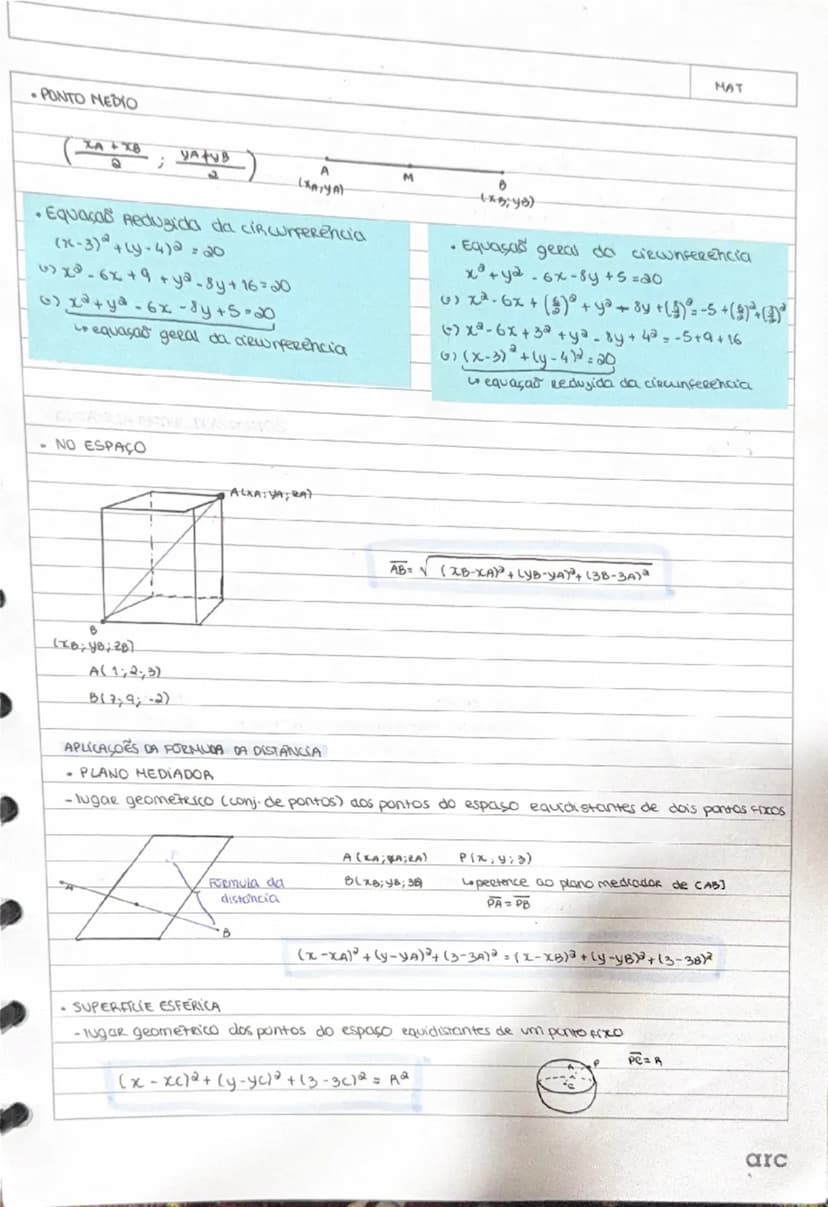 MAT
• PONTO MEDIO
(xA + xB / 2 ; yA + yB / 2)
A
M
B
(xA; yA)
(xB; yB)
• Equação Reduzida da circunferência
(x-3)² + (y-4)² = 20
(=) x² - 6x + 9 + y² - 8y + 16 = 20
(=) x² + y² - 6x - 8y + 5 = 20
↳ equação geral da circunferência
• Equação geral da circunferência
x² + y² - 6x - 8y + 5 = 20
(=) x² - 6x + (6/2)² + y² - 8y + (8/2)² = -5 + (6/2)² + (8/2)²
(=) x² - 6x + 3² + y² - 8y + 4² = -5 + 9 + 16
(=) (x-3)² + (y-4)² = 20
↳ equação reduzida da circunferência
• NO ESPAÇO
A(xA; yA; zA)
AB = √(xB-xA)² + (yB-yA)² + (zB-zA)²
B
(xB; yB; zB)
A(1; 2; 3)
B(7; 9; -2)
APLICAÇÕES DA FÓRMULA DA DISTÂNCIA
• PLANO MEDIADOR
- lugar geométrico (conj. de pontos) dos pontos do espaço equidistantes de dois pontos fixos
A (xA; yA; zA) P(x; y; z)
B(xB; yB; zB) ↳ pertence ao plano mediador de [AB]
PA = PB
P
Fórmula da
distância
A
B
(x-xA)² + (y-yA)² + (z-zA)² = (x-xB)² + (y-yB)² + (z-zB)²
• SUPERFÍCIE ESFÉRICA
- lugar geométrico dos pontos do espaço equidistantes de um ponto fixo
(x - xC)² + (y - yC)² + (z - zC)² = R²
R
P
C
PC = R
arc